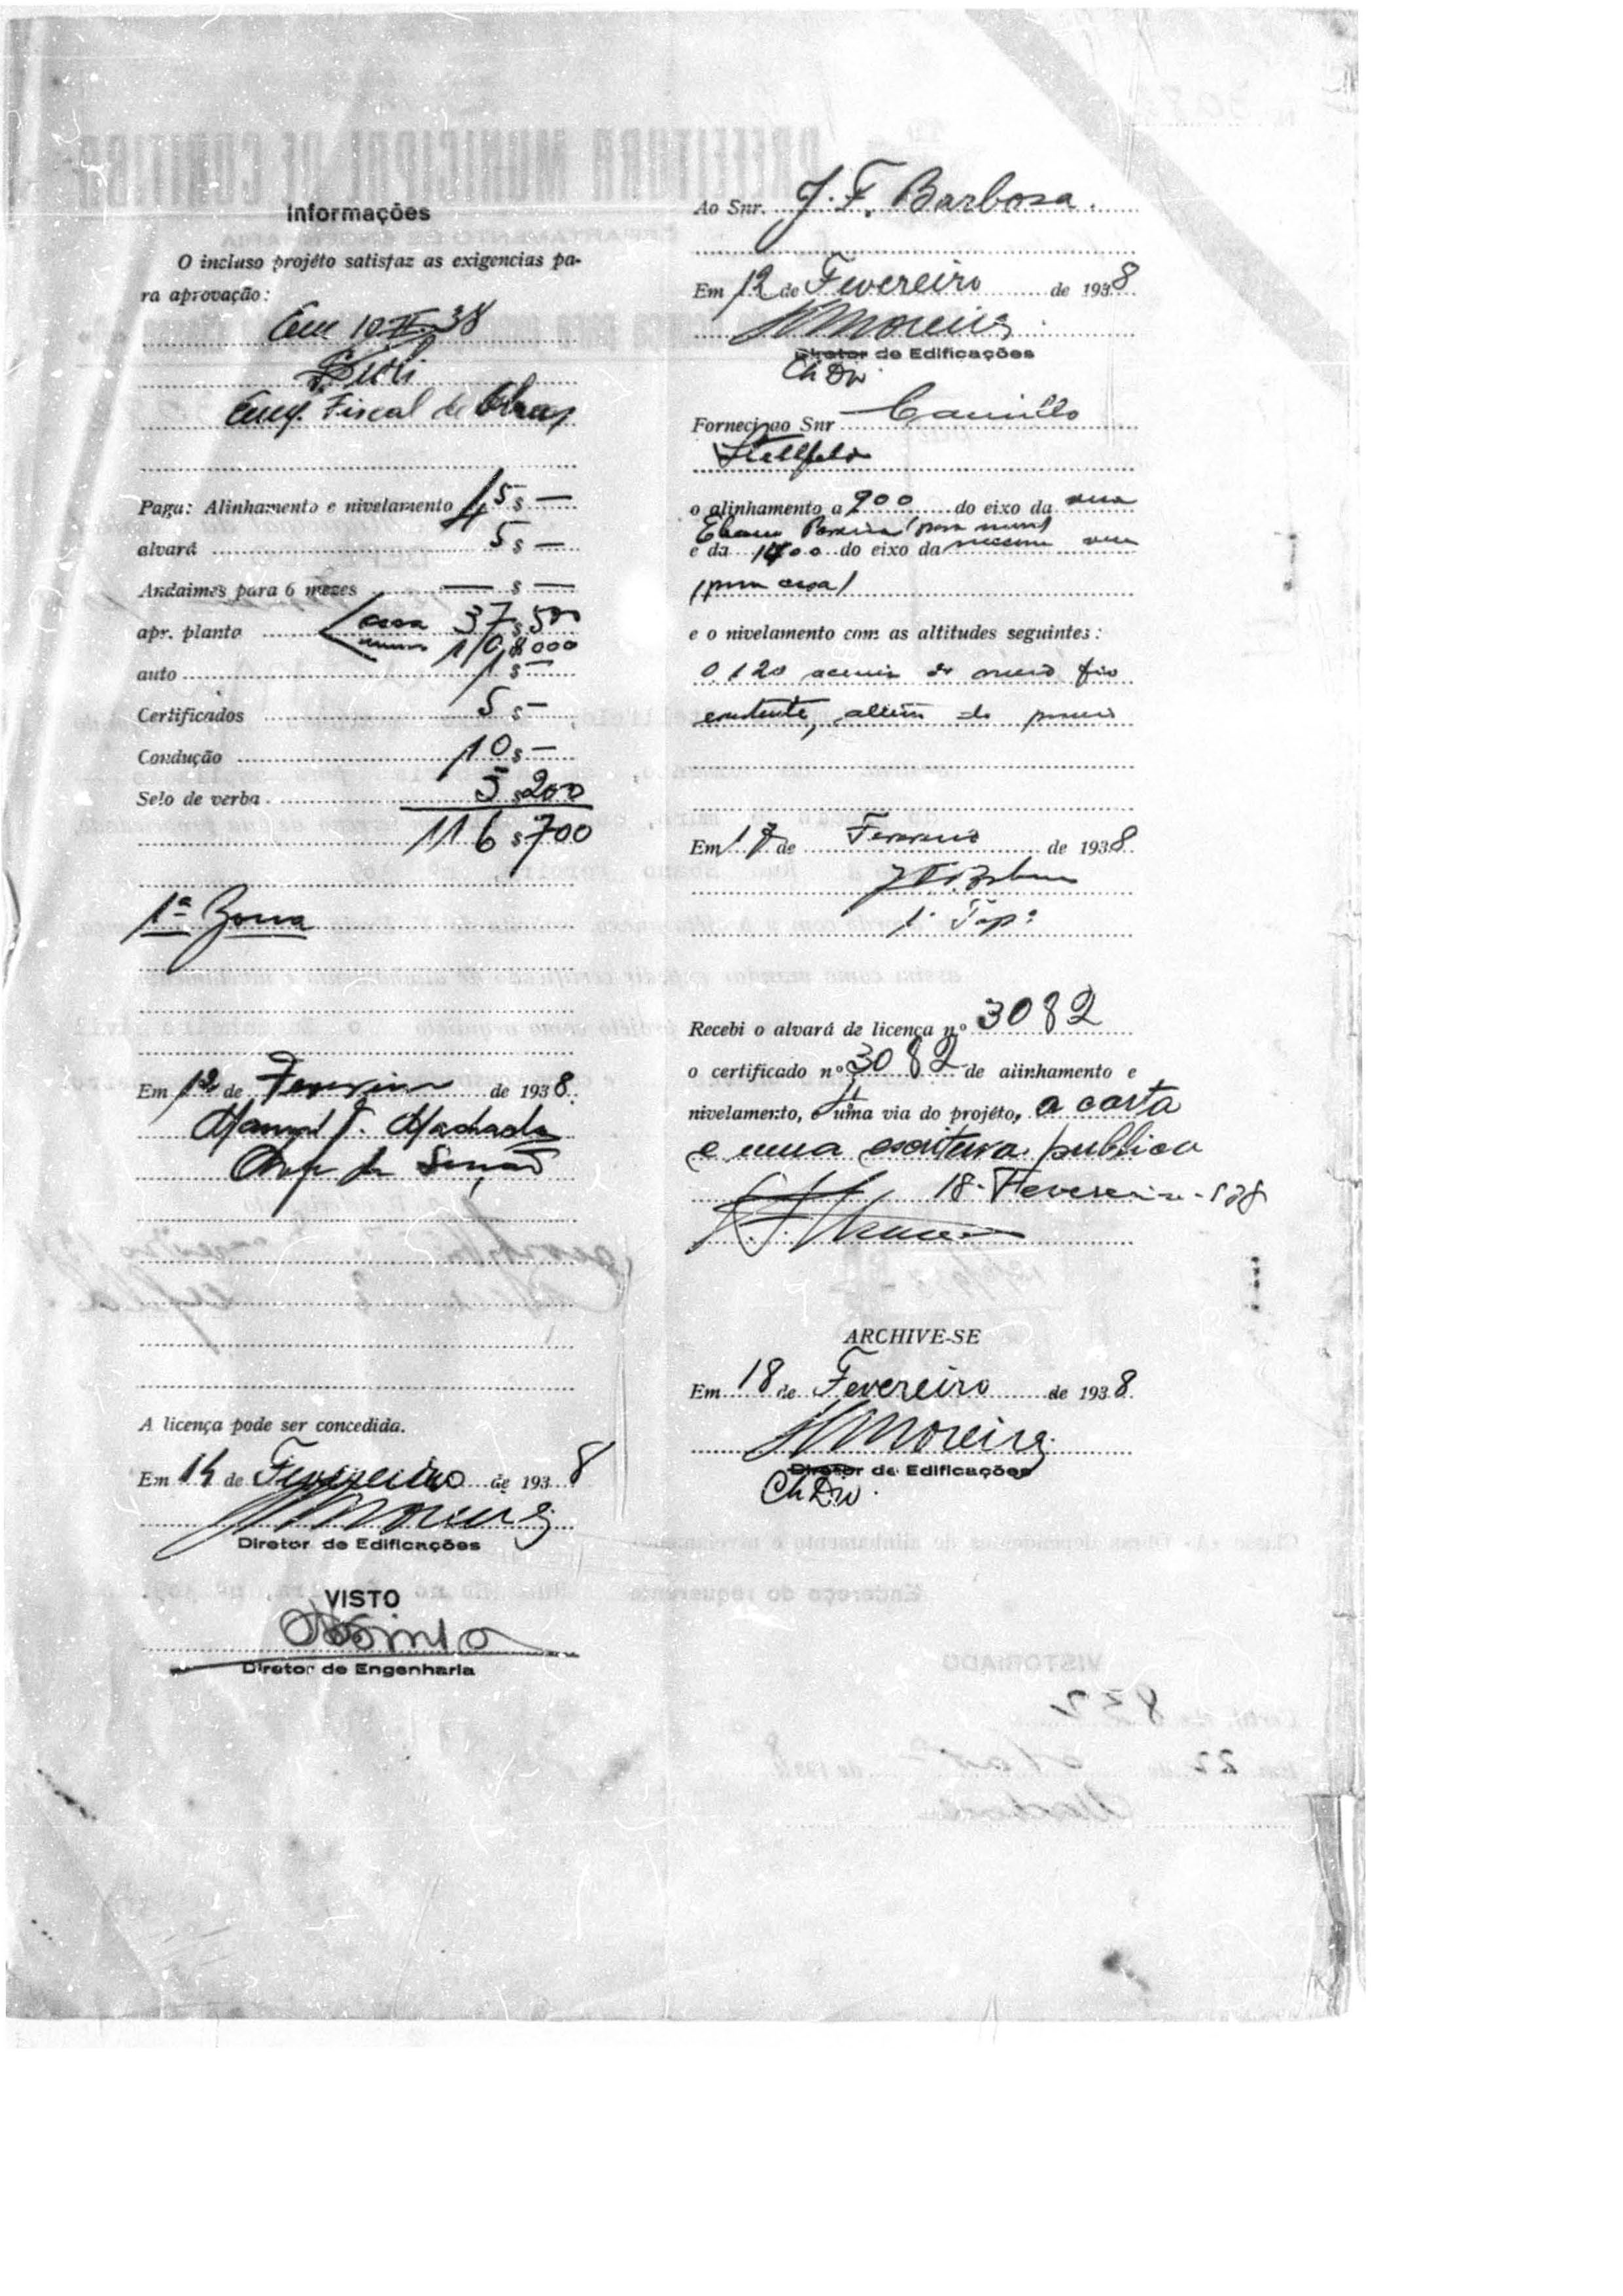 Informações
O incluso projéto satisfaz as exigencias pa-
ra aprovação:
Em 10-II-38
Eng. Fiscal de Obras
Paga: Alinhamento e nivelamento 45 $ —
alvará 5 $ —
Andaimes para 6 mezes — $ —
apr. planta casa 37 $ 500
muro 10 $ 000
auto 1 $ —
Certificados 5 $ —
Condução 10 $ —
Selo de verba 3 $ 200
116 $ 700
1ª Zona
Em 12 de Fevereiro de 1938.
Manoel J. Machado
Chefe da Secção
A licença pode ser concedida.
Em 14 de Fevereiro de 1938
Moreira
Diretor de Edificações
VISTO
Diretor de Engenharia
Ao Snr. J. F. Barbosa.
Em 12 de Fevereiro de 1938.
Moreira
Diretor de Edificações
Ch Div
Forneci ao Snr Camillo
Stellfeld
o alinhamento a 900 do eixo da rua
Ebano Pereira (para muro)
e da 1400 do eixo da mesma rua
(para casa)
e o nivelamento com as altitudes seguintes:
0,120 acima do meio fio
existente, além do
Em 17 de Fevereiro de 1938
J F. Barbosa
1º Topº
Recebi o alvará de licença nº 3082
o certificado nº 3082 de alinhamento e
nivelamento, e uma via do projéto, a carta
e uma escritura publica
18-Fevereiro-938
ARCHIVE-SE
Em 18 de Fevereiro de 1938.
Moreira
Diretor de Edificações
Ch Div.